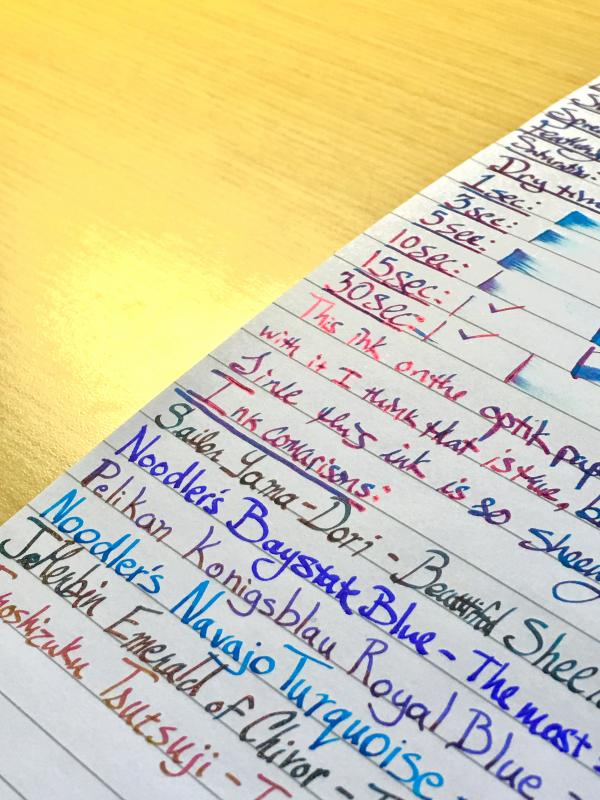 Dry time
1sec:
3sec:
5sec:
10sec:
15sec:
30sec:
This ink on the optik pap
with it I think that is true, b
ink is so sheeny
Ink comparisons:
Sailor Yama-Dori - Beautiful Sheen
Noodler's Baystate Blue - The most
Pelikan Konigsblau Royal Blue -
Noodler's Navajo Turquoise -
J.Herbin Emerald of Chivor - T
oshizuku Tsutsuji - T